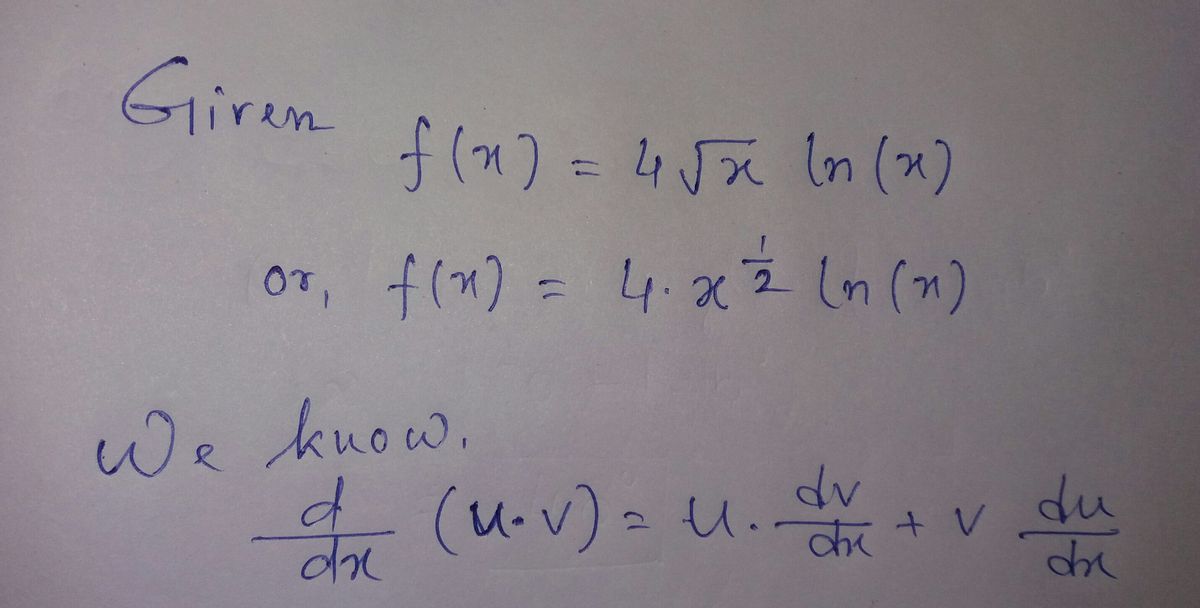 Given
f(x) = 4√x ln(x)
or, f(x) = 4·x^(1/2) ln(x)
We know.
d/dx (u·v) = u·dv/dx + v du/dx